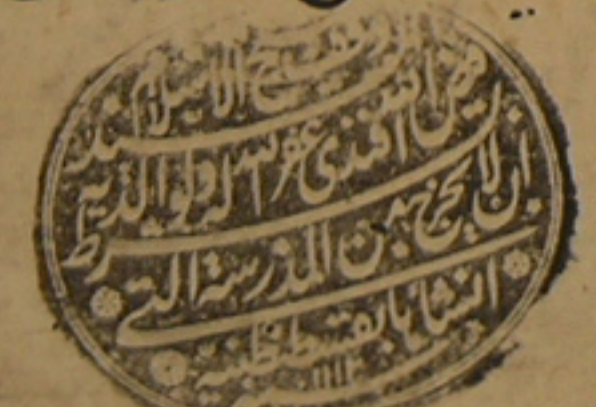 وقف شيخ الاسلام السيد
فيض الله افندى غفر الله له ولوالديه
بشرط ان لا يخرج من المدرسة التى
انشاها بقسطنطينية
سنه